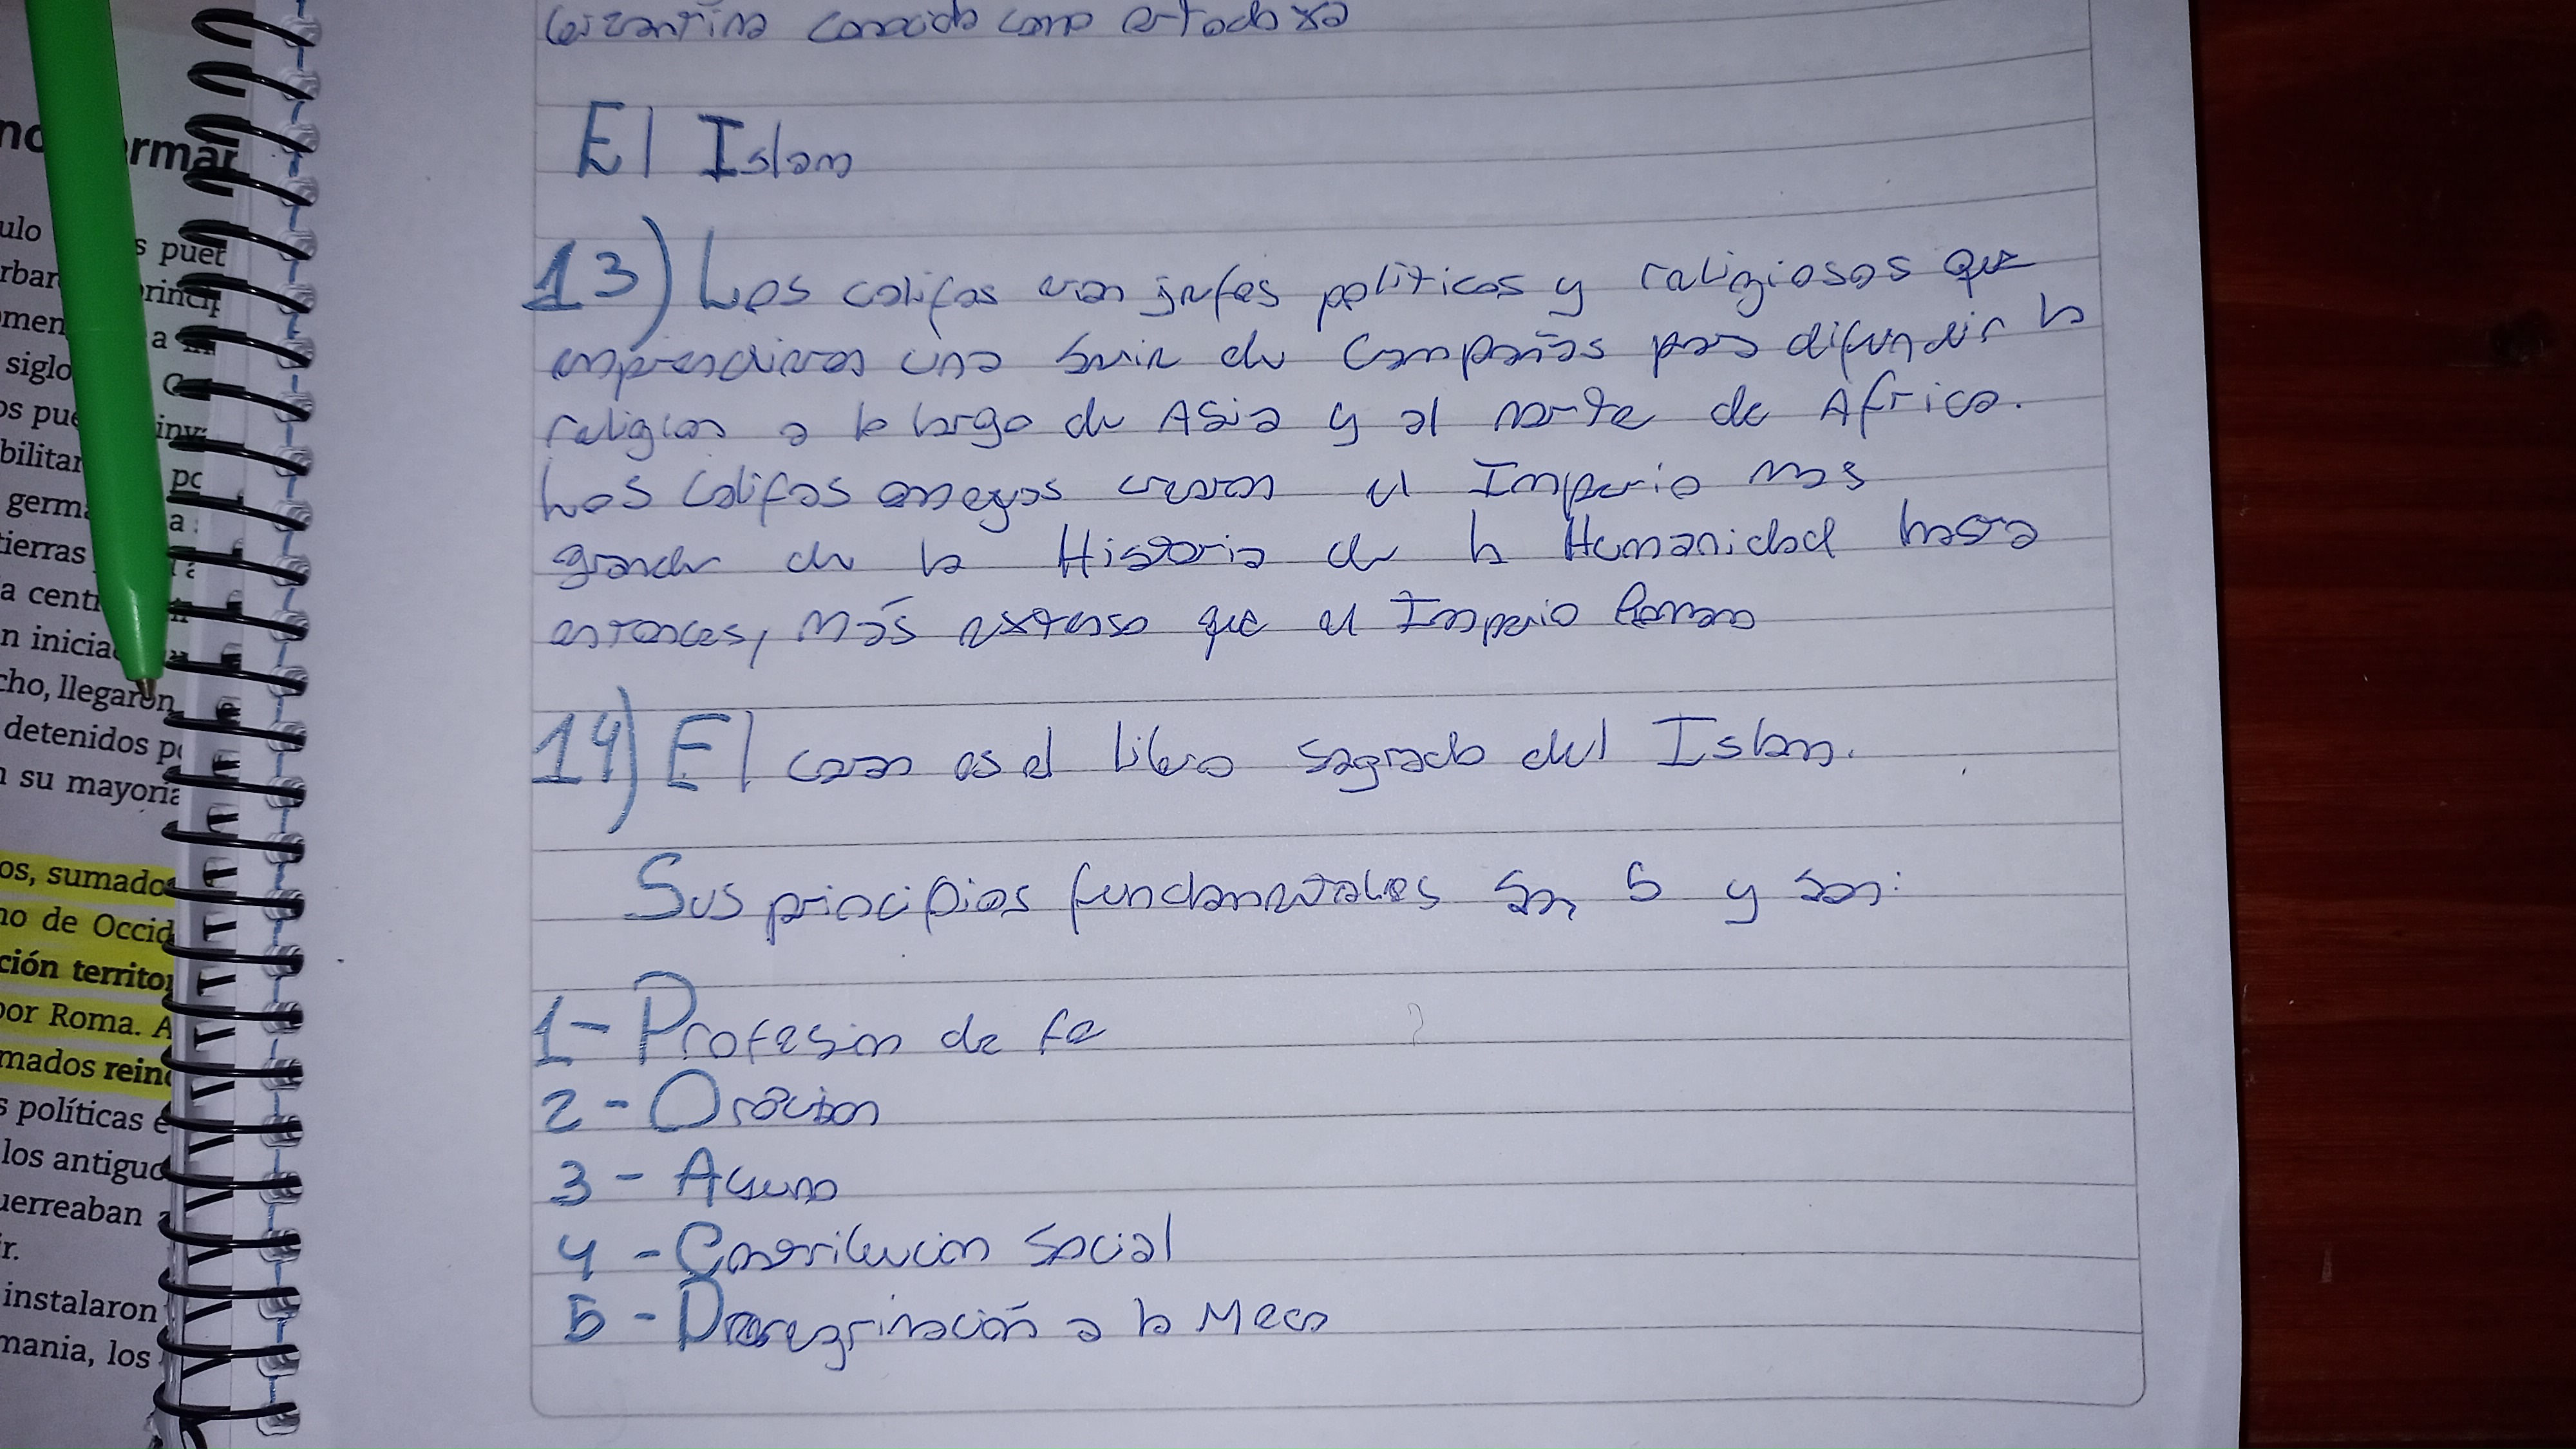 bizantina conocida como ortodoxa
El Islam
13) Los califas eran jefes políticos y religiosos que
emprendieron una serie de Campañas para difundir la
religion a lo largo de Asia y al norte de Africa.
Los Califas omeyas crearon el Imperio mas
grande de la Historia de la Humanidad hasta
entonces, más extenso que el Imperio Romano
14) El coran es el libro sagrado del Islam.
Sus principios fundamentales son 5 y son:
1- Profesion de fe
2- Oración
3- Ayuno
4- Contribucion Social
5- Peregrinación a la Meca
rmar
ulo
s puet
rbar
princip
omen
a
siglo
os pue
inv
bilitar
po
germa
a
tierras
a cent
n inicia
cho, llegaron
detenidos po
n su mayoria
os, sumados
no de Occid
ción territor
por Roma. A
mados reino
s políticas e
los antiguo
uerreaban a
r.
instalaron
mania, los